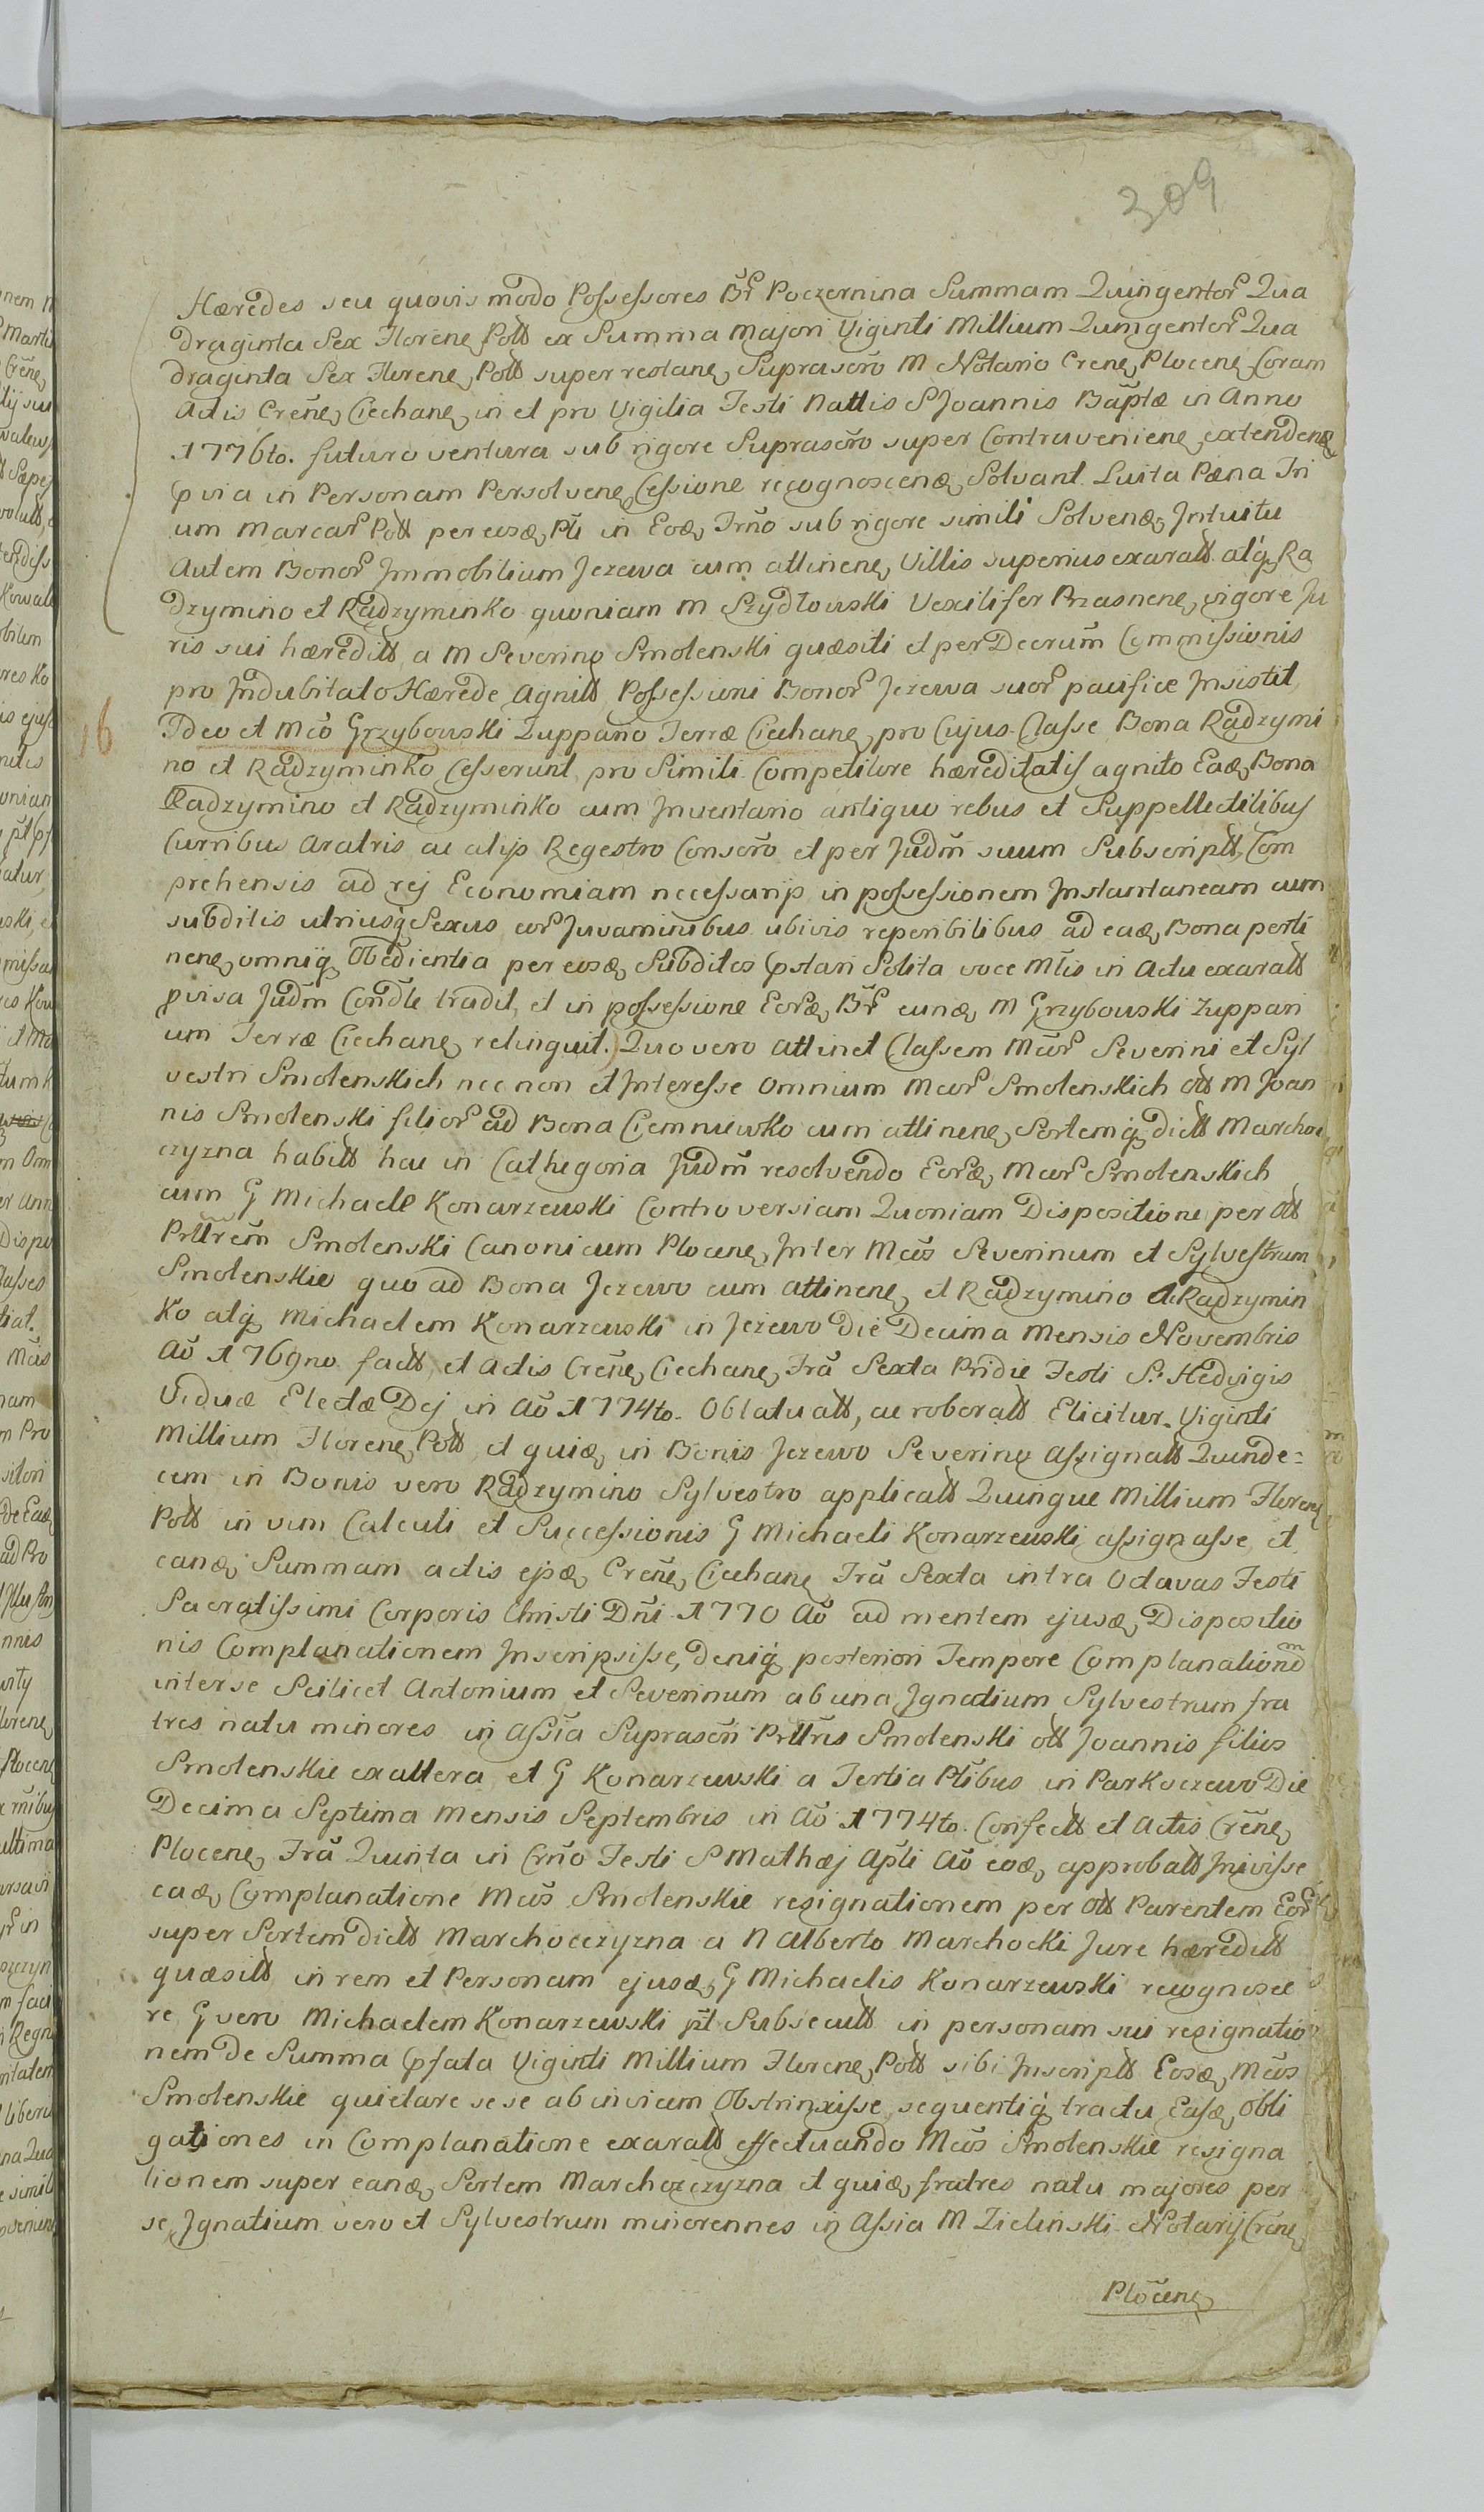 309
Hæredes seu quovis modo Possessores Br̃ Poczernina Summam Quingentor̃ Qua
draginta Sex Florene Poll ex Summa majori Viginti Millium Quingentor̃ Qua
draginta Sex Florene, Poll super restane, Suprascr̃o M Notario Crene, Plocene, Coram
Actis Cren̄e, Ciechane, in et pro Vigilia Festi Nattis S Joannis Bap̃tæ in Anno
1776to. futuro ventura sub rigore Suprascr̃o super Contraveniene, extendenæ
pvia in Personam Persolvene, Cessione recognoscenæ, Solvant. Luita Pæna Tri
um Marcar̃ Poll per eosæ, Pti in Eoæ, Trñō sub rigore simili Solvenæ, Intuitu
Autem Bonor̃ Immobilium Jezewa cum attinene, Villis superius exaratt atq, Ra
dzymino et Radzyminko quoniam M Szydłowski Vexilifer Prasnene, vigore Ju
ris sui hæreditt a M Severino Smolenski quæsiti et per Decrum̄ Commissionis
pro Indubitato Hærede Agnitt Possessioni Bonor̃ Jezewa suor̃ pacifice Insistit,
16
Ideo et Mcō Grzybowski Zuppano Terræ Ciechane, pro Cujus Classe Bona Radzymi
no et Radzyminko Cesserunt, pro Simili Competitore hæreditatis agnito Eaæ, Bona
Radzymino et Radzyminko cum Inventario antiquo rebus et Suppellectilibus
Curribus Aratris ac alijs Regestro Conscr̃o et per Judm̄ suum Subscriptt, Com
prehensis ad rej Economiam necessarijs in possessionem Instantaneam cum
subditis utriusq̃ Sexus eor̃ Juvaminibus ubivis reperibilibus ad eaæ, Bona perti
nene, omniq, Obedientia per eosæ, Subditos pstari Solita voce Mtis in Actu exaratt
pvisa Judm̄ Condle tradit, et in possessione Eor̃æ, Br̃ eunæ, M Grzybowski Zuppan
um Terræ Ciechane, relinquit.) Quo vero attinet Classem Mcor̃ Severini et Syl
vestri Smolenskich nec non et Interesse Omnium Mcor̃ Smolenskich ott M Joan
nis Smolenski filior̃ ad Bona Ciemniewko cum attinene, Sortemq, dictt Marcho
czyzna habitt hac in Cathegoria Judm̄ resolvendo Eor̃æ, Mcor̃ Smolenskich
cum G Michaele Konarzewski Controversiam Quoniam Dispositione per ott
Prttrem̄ Smolenski Canonicum Plocene, Inter Mcōs Severinum et Sylvestrum
Smolenskie quo ad Bona Jezewo cum attinene, et Radzymino Ac Radzymin
ko atq, Michaelem Konarzewski in Jezewo Die Decima Mensis Novembris
Aō 1769no factt, et Actis Cren̄e, Ciechane, Frā Sexta Pridie Festi S. Hedvigis
Viduæ Electæ Dej in Aō 1774to. Oblatuatt, ac roboratt Elicitur. Viginti
Millium Florene, Poll, et quiæ, in Bonis Jezewo Severino Assignatt Quinde=
cem in Bonis vero Radzymino Sylvestro applicatt Quinque Millium Florene,
Poll in vim Calculi et Successionis G Michaeli Konarzewski assignasse, et
eanæ, Summam actis ejsæ, Cren̄e, Ciechane, Frā Sexta intra Octavas Festi
Sacratissimi Corporis Christi Dñi 1770 Aō ad mentem ejusæ, Dispositio
nis Complanationem Inscripsisse, deniq̃ posteriori Tempore Complanationem
inter se Scilicet Antonium et Severinum ab una, Ignatium Sylvestrum fra
tres natu minores in Assia Suprascr̃i Prttris Smolenski ott Joannis filios
Smolenskie ex altera, et G Konarzewski a Tertia Ptibus in Parkoczewo Die
Decima Septima Mensis Septembris in Aō 1774to. Confectt et Actis Cren̄e,
Plocene, Frā Quinta in Crñō Festi S Mathæj Apli Aō eoæ, approbatt Inivisse
eaæ, Complanatione Mcōs Smolenskie resignationem per ott Parentem Eor̃
super Sortem dictt Marchoczyzna a N Alberto Marchocki Jure hæreditt
quæsitt in rem et Personam ejusæ, G Michaelis Konarzewski recognosce
re G vero Michaelem Konarzewski pt Subsecutt in personam sui resignatio
nem de Summa pfata Viginti Millium Florene, Poll sibi Inscriptt Eosæ, Mcōs
Smolenskie quietare sese ab invicem Obstrinxisse, sequentiq̃ tractu Easæ, Obli
gationes in Complanatione exaratt effectuando Mcōs Smolenskie resigna
tionem super eanæ, Sortem Marchoczyzna et quiæ, fratres natu majores per
se, Ignatium vero et Sylvestrum minorennes in Assia M Zielinski Notarij Cren̄e,
Plocene,